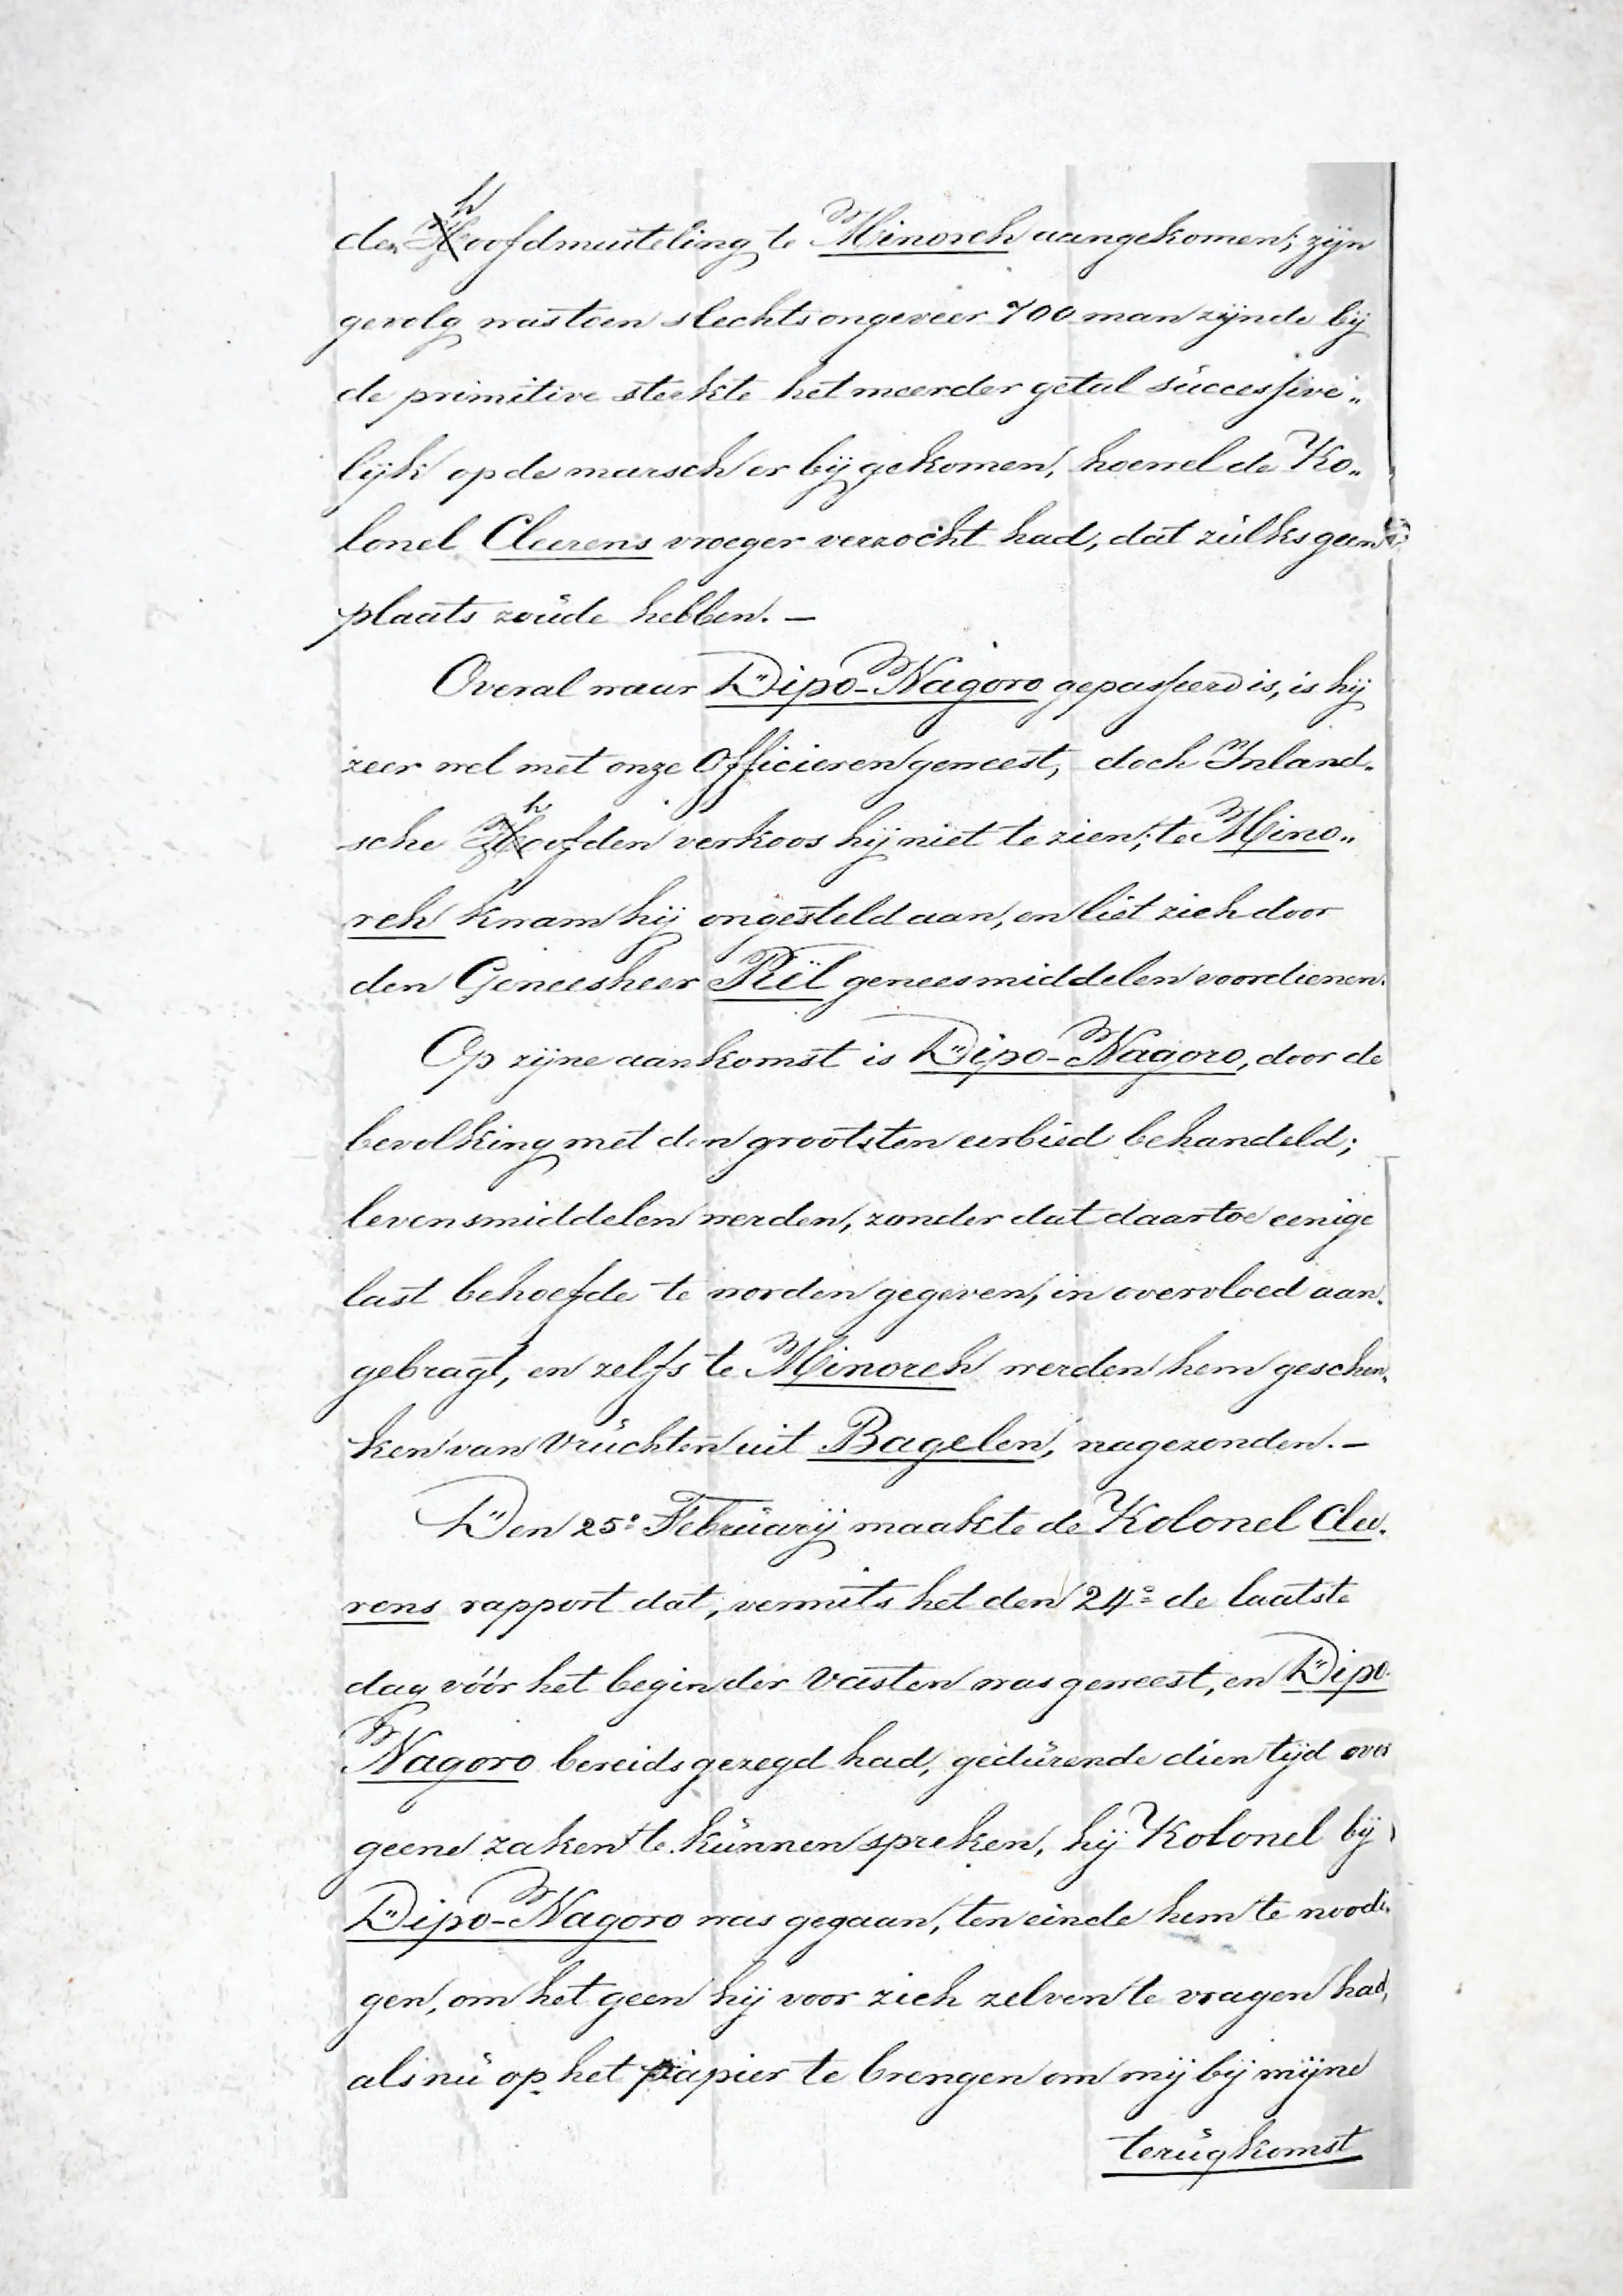 den hoofdmuiteling te Minoreh aangekomen; zijn
gevolg was toen slechts ongeveer 700 man zijnde bij
de primitive sterkte het meerder getal successive„
lijk op de marsch er bij gekomen, hoewel de Ko„
lonel Cleerens vroeger verzocht had, dat zulks geen
plaats zoude hebben. —
Overal waar Dipo-Nagoro gepasseerd is, is hij
zeer wel met onze Officieren geweest, doch Inland„
sche hoofden verkoos hij niet te zien; te Mino„
reh kwam hij ongesteld aan, en liet zich door
den Geneesheer Pïtl geneesmiddelen voordienen.
Op zijne aankomst is Dipo-Nagoro, door de
bevolking met den grootsten eerbied behandeld;
levensmiddelen werden, zonder dat daartoe eenige
last behoefde te worden gegeven, in overvloed aan„
gebragt, en zelfs te Minoreh werden hem geschen„
ken van vruchten uit Bagelen, nagezonden. —
Den 25e Februarij maakte de Kolonel Clee„
rens rapport dat, vermits het den 24e de laatste
dag vóór het begin der Vasten was geweest, en Dipo
Nagoro bereids gezegd had, gedurende dien tijd over
geene zaken te kunnen spreken, hij Kolonel bij
Dipo-Nagoro was gegaan, ten einde hem te noodi„
gen, om het geen hij voor zich zelven te vragen had,
als nu op het papier te brengen om mij bij mijne
terugkomst